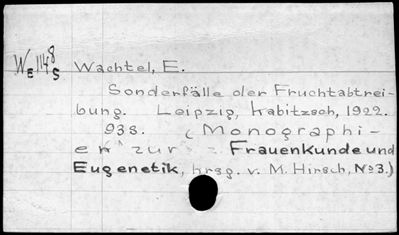 WE 1148 S Wachtel, E.
Sonderfälle der Fruchtabtrei-
bung. Leipzig, Kabitzsch, 1922.
93S. (Monographi-
en zur Frauenkunde und
Eugenetik, hrsg. v. M. Hirsch, No3.)